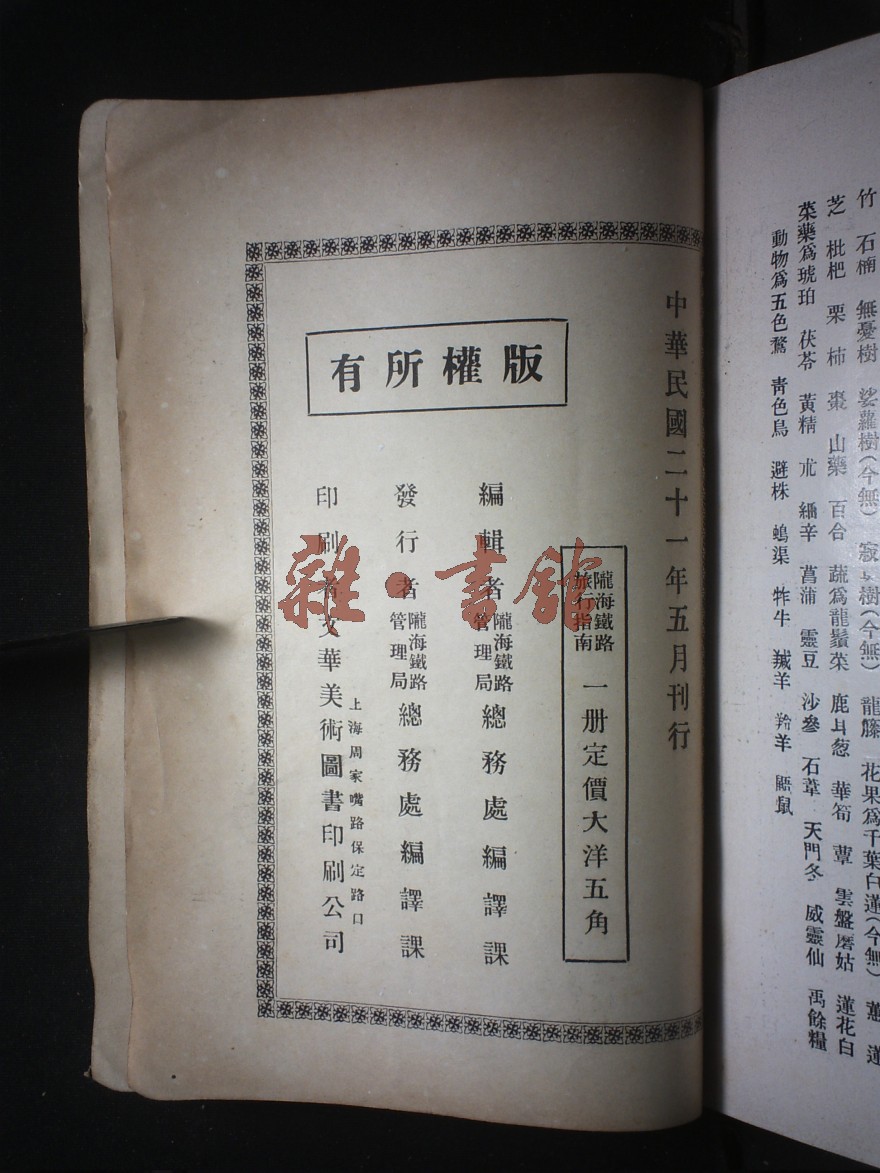 竹　石楠　無憂樹　娑蘿樹(今無)　樹(今無)　龍籐　花果爲千葉白蓮(今無)
芝　枇杷　栗　柿　棗　山藥　百合　蔬爲龍鬚菜　鹿耳葱　華筍　蕈　雲盤磨姑　蓮花白
菜藥爲琥珀　茯苓　黃精　朮　細辛　菖蒲　靈豆　沙參　石葦　天門冬　威靈仙　禹餘糧
動物爲五色鶩　靑色鳥　避株　鴆渠　牸牛　羬羊　羚羊　鼯鼠
中華民國二十一年五月刊行
隴海鐵路旅行指南　一册定價大洋五角
版權所有
編輯者　隴海鐵路管理局總務處編譯課
發行者　隴海鐵路管理局總務處編譯課
上海周家嘴路保定路口
印刷者　文華美術圖書印刷公司
雜·書館